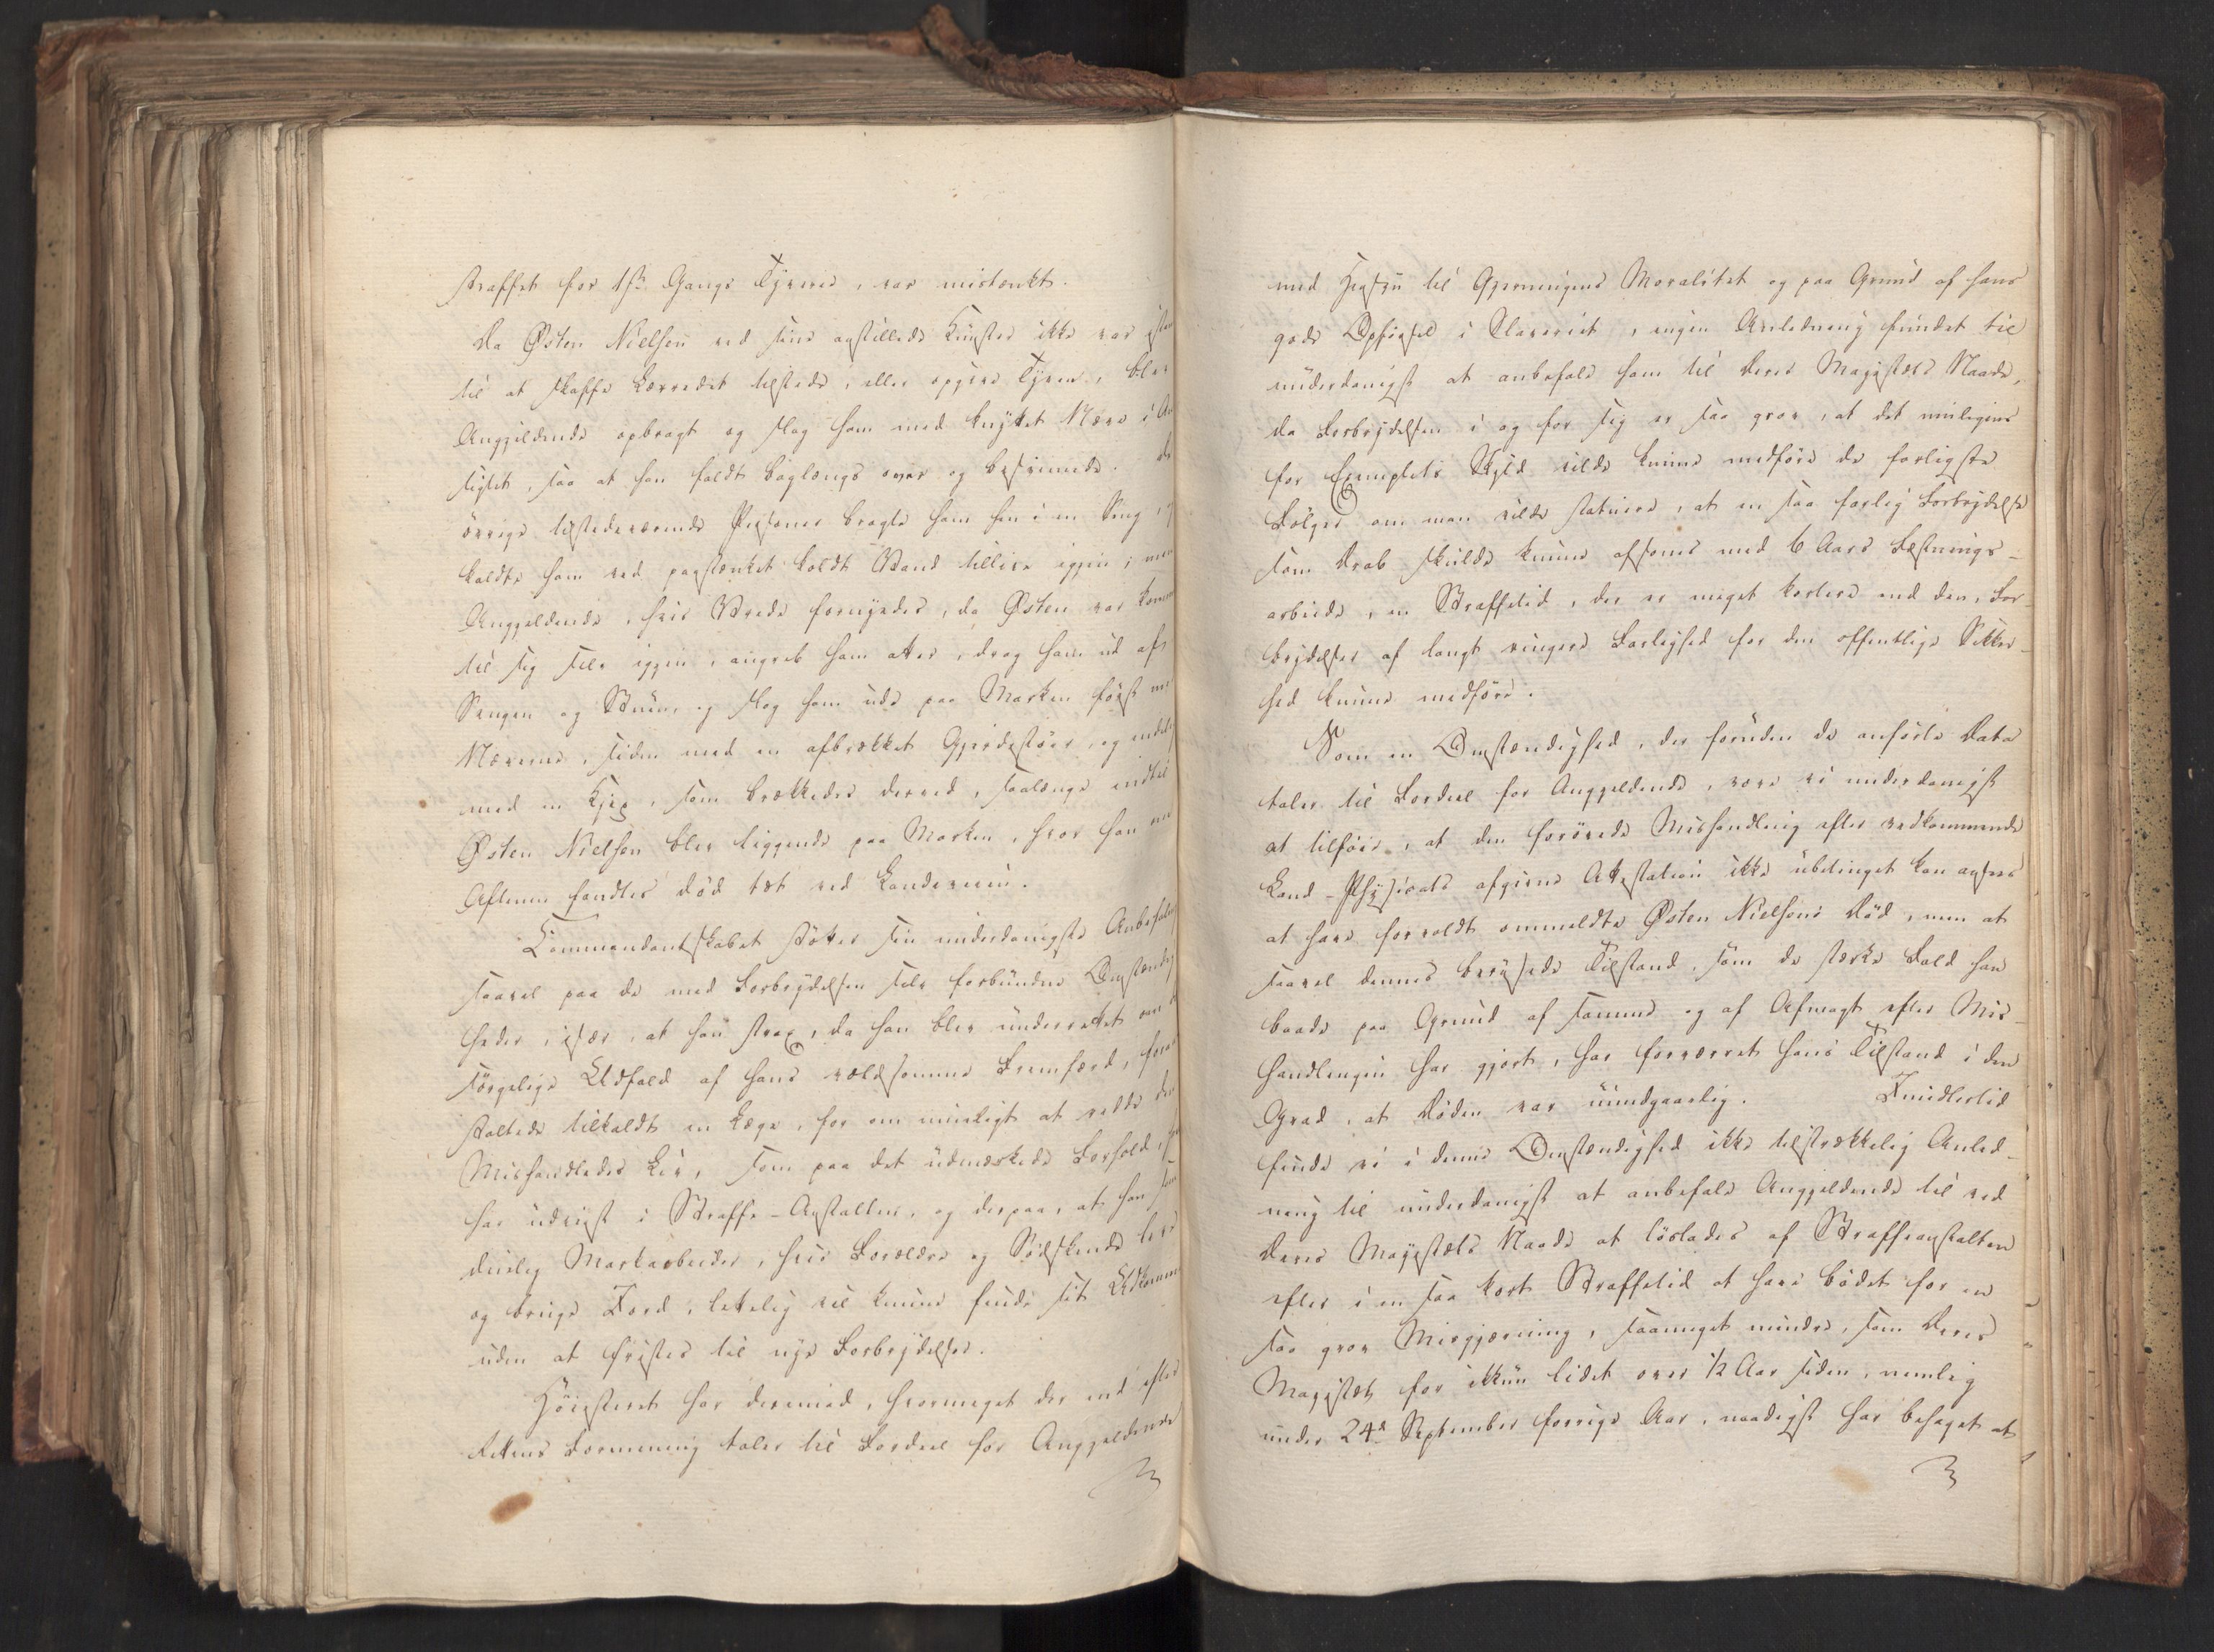 straffet for 1ste Gangs Tyverie, var mistænkt.
Da Østen Nielsen ved sine anstillede Kunster ikke var istan
til at skaffe Lærredet tilstede, eller opgive Tyven, blev
Anggjeldende opbragt og slog ham med knyttet Næve i An
sigtet, saa at han faldt baglængs over og besvimede. De
övrige tilstedeværende Personer bragte ham hen i en Seng, og
kaldte ham ved paastænket koldt Vand tillive igjen; men
Anggjeldende, hvis Vrede fornyedes, da Østen var kommen
til sig selv igjen, angreb ham atter, drog ham ud af
Sengen og Stuen, og slog ham ude paa Marken först med
Næverne, siden med en afbrækket Gjerdestör, og endelig
med en Kjep, som brækkedes derved, saalænge indtil
Østen Nielsen blev liggende paa Marken, hvor han om
Aftenen fandtes död tæt ved Landeveien.
Commandantskabet stötter sin underdanigste Anbefaling
saavel paa de med Forbrydelsen selv forbundne Omstændig
heder, især, at han strax, da han blev underrettet om det
sörgelige Udfald af hans voldsomme Fremfærd, foran
staltede tilkaldt en Læge, for om mueligt at redde den
Mishandledes Liv, som paa det udmærkede Forhold, han
har udviist i Straffe-Anstalten, og derpaa, at han som
duelig Markarbeider, hvis Forældre og Södskende leve
og bruge Jord, lettelig vil kunne finde sit Udkomme
uden at fristes til nye Forbrydelser.
Höiesteret har derimod, hvormeget der end efter
Rettens Formening taler til Fordeel for Anggjeldende
med Hensyn til Gjerningens Moralitet og paa Grund af hans
gode Opförsel i Slaveriet, ingen Anledning fundet til
underdanigst at anbefale ham til Deres Majestæts Naade,
da Forbrydelsen i og for sig er saa grov, at det mueligens
for Exemplets Skyld vilde kunne medföre de farligste
Fölger om man vilde statuere, at en saa farlig Forbrydelse
som Drab skulde kunne afsones med 6 Aars Fæstnings-
arbeide, en Straffetid, der er meget kortere end den, For-
brydelser af langt ringere Farlighed for den offentlige Sikker-
hed kunne medföre.
Som en Omstændighed, der foruden de anförte Data
taler til Fordeel for Anggjeldende, vove vi underdanigst
at tilföie, at den forövede Mishandling efter vedkommende
Land-Physicats afgivne Attestation ikke ubetinget kan ansees
at have forvoldt ommeldte Østen Nielsens Död, men at
saavel dennes berusede Tilstand, som de stærke Fald han
baade paa Grund af samme og af Afmagt efter Mis-
handlingen har gjort, har forværret hans Tilstand i den
Grad, at Döden var uundgaaelig. Imidlertid
finde vi i denne Omstændighed ikke tilstrækkelig Anled-
ning til underdanigst at anbefale Anggjeldende til ved
Deres Majestæts Naade at löslades af Straffeanstalten
efter i en saa kort Straffetid at have bödet for en
saa grov Misgjerning, saameget mindre, som Deres
Majestæt, for ikkun lidet over 1/2 Aar siden, nemlig
under 24de September forrige Aar, naadigst har behaget at